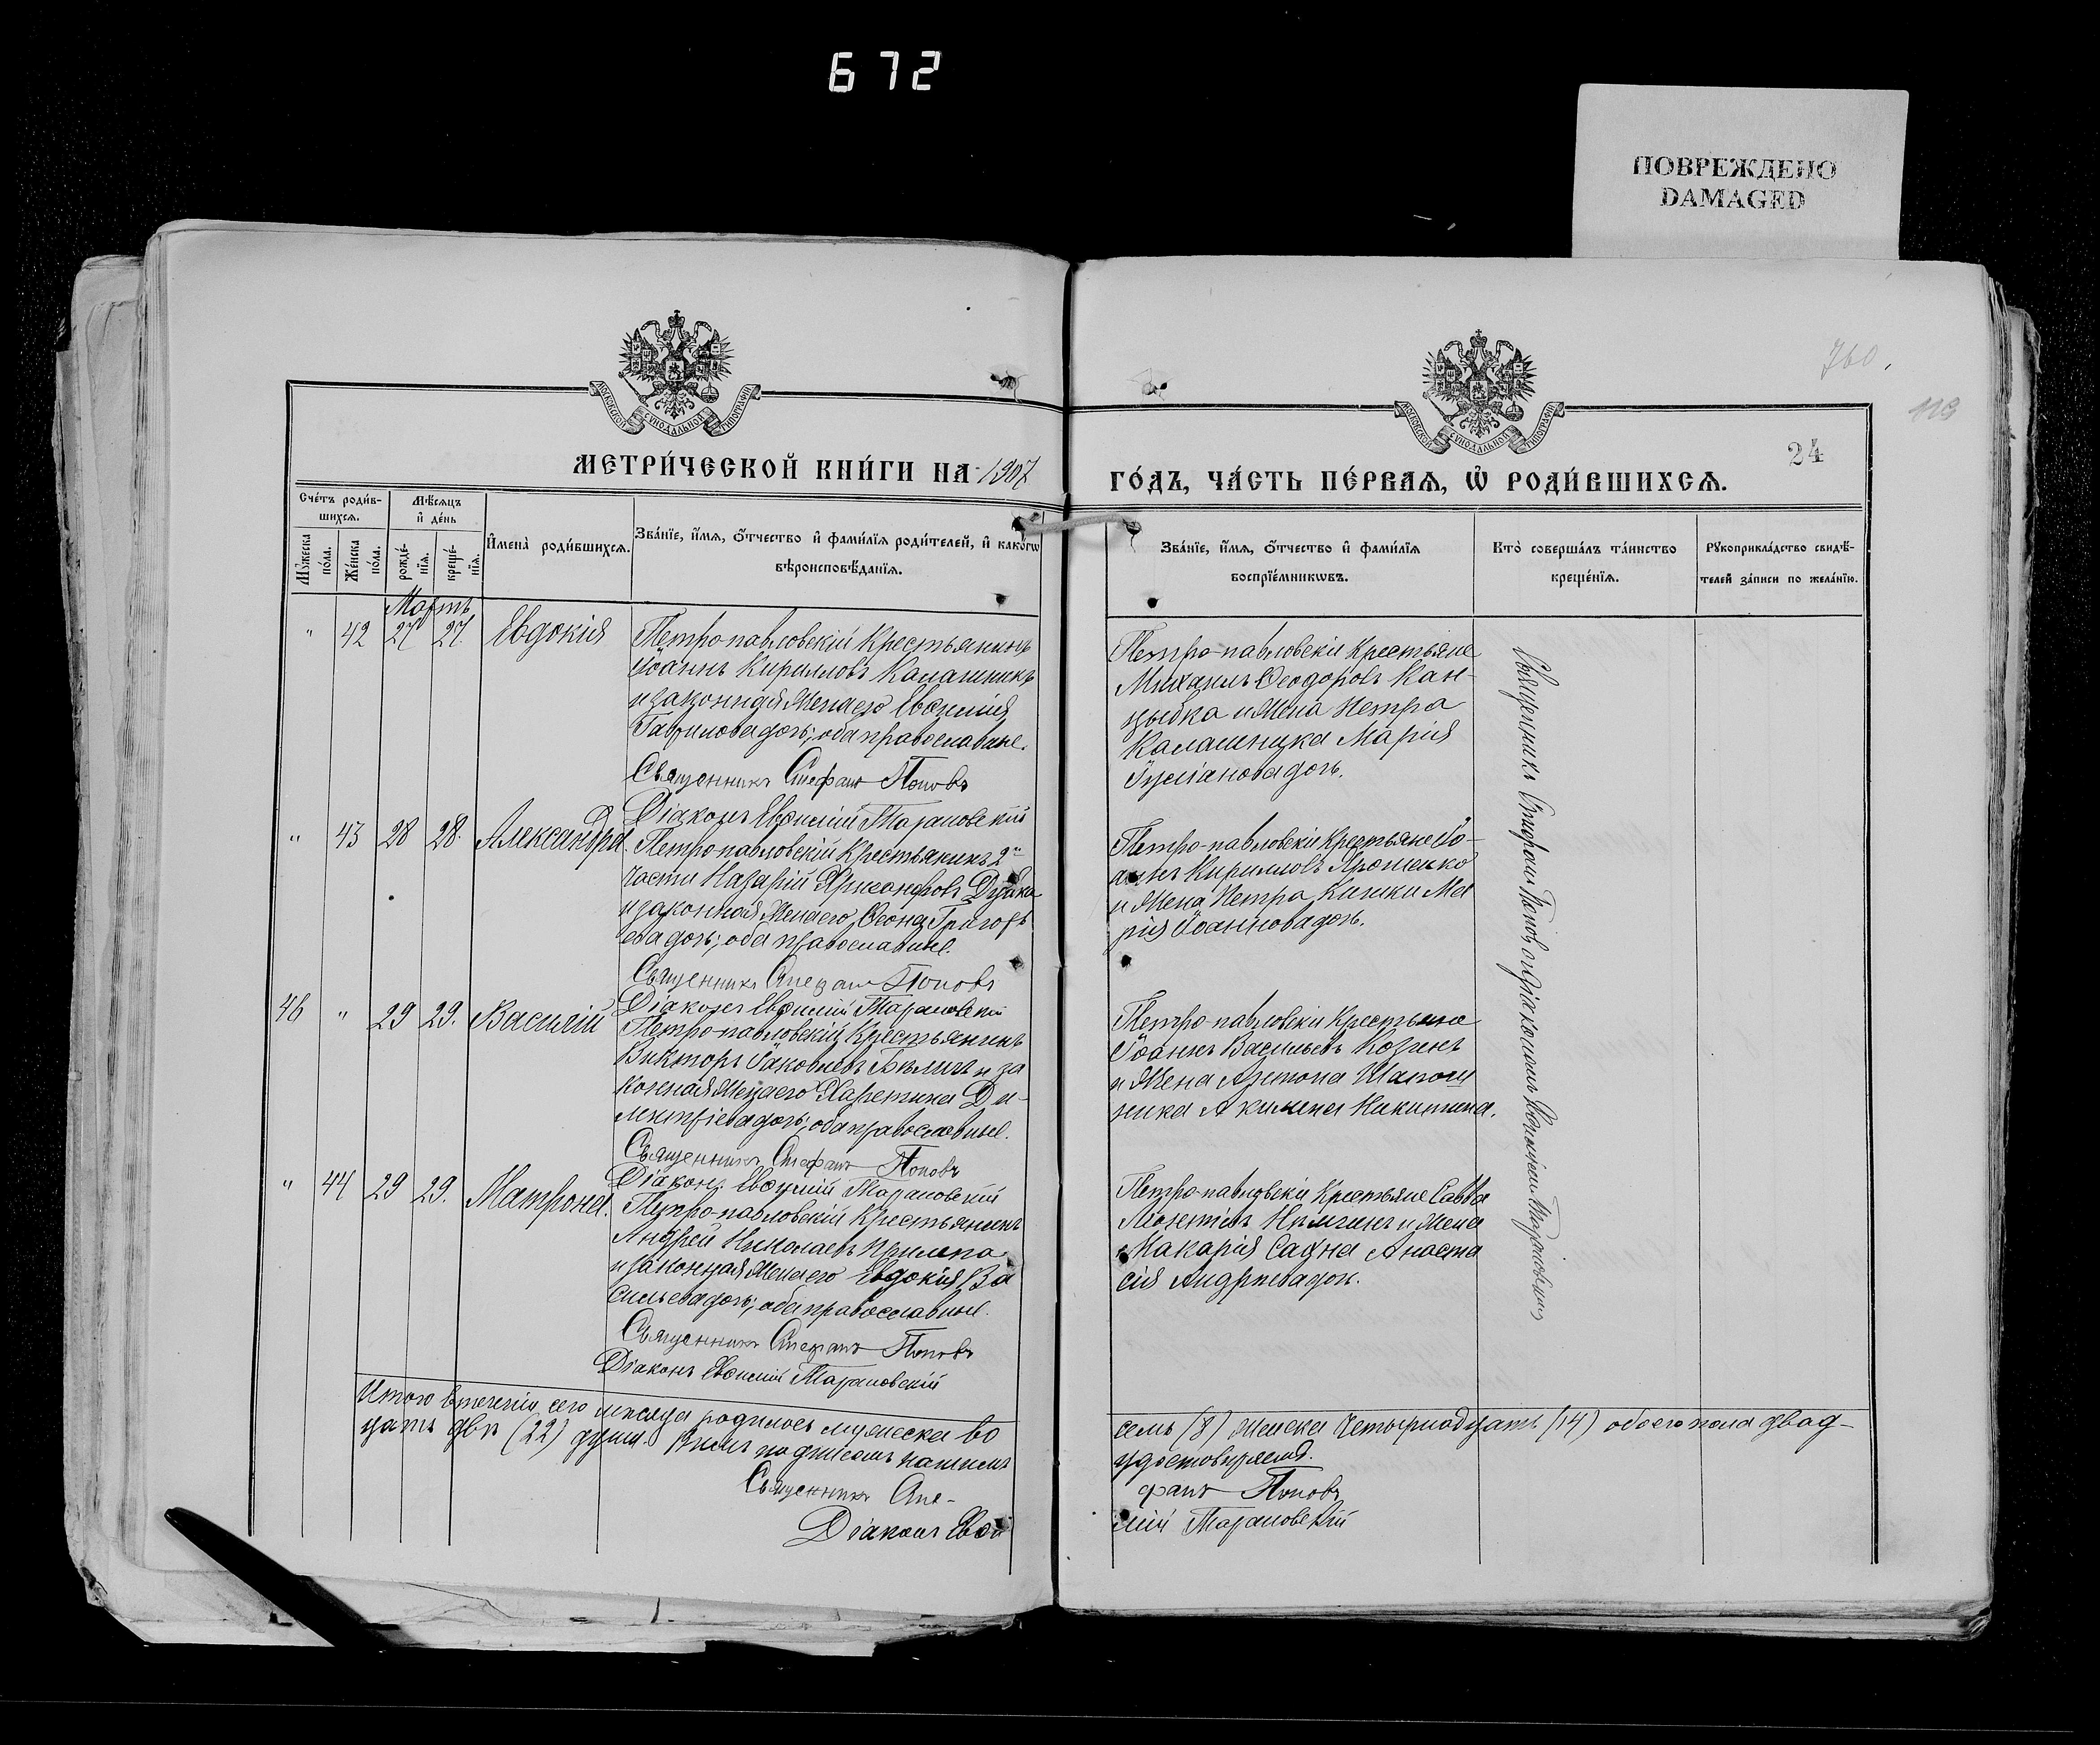 672
ПОВРЕЖДЕНО
DAMAGED
760.
119
24
МОСКОВСКОЙ СѴНОДАЛЬНОЙ ТИПОГРАФІИ
МОСКОВСКОЙ СѴНОДАЛЬНОЙ ТИПОГРАФІИ
МЕТРИ́ЧЕСКОЙ КНИ́ГИ НА 1907
ГО́ДЪ, ЧА́СТЬ ПЕ́РВАЯ, Ѡ҆ РОДИ́ВШИХСЯ.
Сче́тъ роди́в-
шихся.
Мꙋ́жеска
по́ла.
Же́нска
по́ла.
Мѣ́сяцъ
и҆ де́нь
рожде́-
нїя.
креще́-
нїя.
И҆мена̀ роди́вшихся.
Зва́нїе, и҆́мя, ѻ҆́тчество и҆ фами́лїя роди́телей, и҆ како́гѡ
вѣроисповѣ́данїя.
Зва́нїе, и҆́мя, ѻ҆́тчество и҆ фами́лїя
воспрїе́мникѡвъ.
Кто̀ соверша́лъ та́инство
креще́нїя.
Рꙋкоприкла́дство свидѣ́-
телей за́писи по жела́нїю.
Мартъ
" 42 27 27. Евдокія
Петро-павловскій Крестьянинъ
Іоаннъ Кирилловъ Калашникъ
и законная жена его Евѳимія
Гаврилова дочь; оба православные.
Священникъ Стефанъ Поповъ
Діаконъ Евѳимій Тарановскій
Петро-павловскіе Крестьяне
Михаилъ Ѳеодоровъ Кан-
цыбка и жена Петра
Калашника Марія
дочь.
" 43 28 28. Александра.
Петро-павловскій Крестьянинъ 2й
части Назарій Дудка
и законная жена его Григорь
ева дочь; оба православные.
Священникъ Стефанъ Поповъ
Діаконъ Евѳимій Тарановскій
Петро-павловскіе Крестьяне Іо-
аннъ Кирилловъ Ярошенко
и жена Петра Кишки Ма
рія Іоаннова дочь.
46 " 29 29. Василій
Петро-павловскій Крестьянинъ
Викторъ Іаковлевъ Бѣличъ и за
конная жена его Харитина Ди-
митріева дочь; оба православные.
Священникъ Стефанъ Поповъ
Діаконъ Евѳимій Тарановскій
Петро-павловскіе Крестьяне
Іоаннъ Васильевъ Козинъ
и жена Шапош
ника Акилина Никитина.
" 44 29 29. Матрона.
Петро-павловскій Крестьянинъ
Андрей Николаевъ Прилепа
и законная жена его Евдокія Ва
сильева дочь; оба православные.
Священникъ Стефанъ Поповъ
Діаконъ Евѳимій Тарановскій
Петро-павловскіе Крестьяне Савва
Леонтіевъ и жена
Макарія Анаста
сія Андреева дочь.
Священникъ Стефанъ Поповъ съ діакономъ Евѳиміемъ Тарановскимъ
Итого втеченіи сего мѣсяца родилось мужеска во
семь (8) женска четырнадцать (14) обоего пола двад-
цать двѣ (22) души. Въ чемъ подписомъ нашимъ
удостовѣряемъ.
Священникъ Сте-
фанъ Поповъ
Діаконъ Евѳи
мій Тарановскій